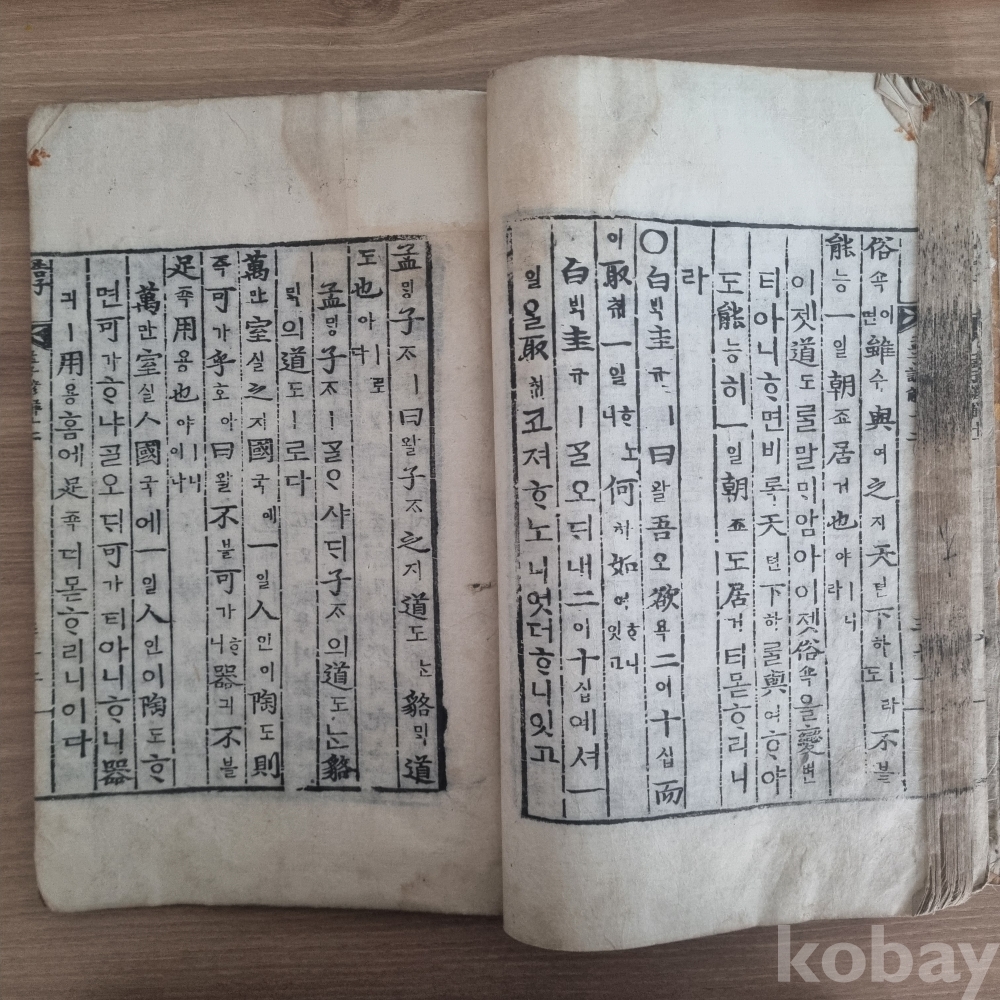 俗속이면雖수與여之지天텬下하ㅣ라도不블
能능一일朝죠居거也야ㅣ니라
이젯道도를말미암아이젯俗속을變변
티아니ᄒᆞ면비록天텬下하ᄅᆞᆯ與여ᄒᆞ야
도能능히一일朝죠도居거티몯ᄒᆞ리니
라
○白ᄇᆡᆨ圭규ㅣ曰왈吾오欲욕二이十십而
이取취一일ᄒᆞ노니何하如여ᄒᆞ니잇고
白ᄇᆡᆨ圭규ㅣᄀᆞᆯ오ᄃᆡ내二이十십에셔一
일을取취코져ᄒᆞ노니엇더ᄒᆞ니잇고
孟ᄆᆡᆼ子ᄌᆞㅣ曰왈子ᄌᆞ之지道도ᄂᆞᆫ貉ᄆᆡᆨ道
도也야ㅣ로다
孟ᄆᆡᆼ子ᄌᆞㅣᄀᆞᆯᄋᆞ샤ᄃᆡ子ᄌᆞ의道도ᄂᆞᆫ貉
ᄆᆡᆨ의道도ㅣ로다
萬만室실之지國국애一일人인이陶도則
즉可가乎호아曰왈不블可가ᄒᆞ니器긔不블
足족用용也야ㅣ니이다
萬만室실人國국에一일人인이陶도ᄒᆞ
면可가ᄒᆞ냐ᄀᆞᆯ오ᄃᆡ可가티아니ᄒᆞ니器
긔ㅣ用용홈에足족디몯ᄒᆞ리니이다
kobay